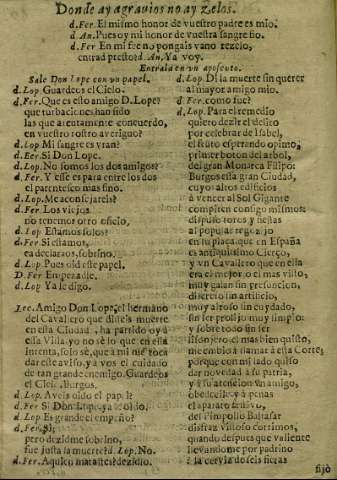 Donde ay agravios no ay zelos.
d. Fer. El mismo honor de vuestro padre es mio.
d. An. Pues oy mi honor de vuestra sangre fio.
d. Fer. En mi fee no pongais vano rezelo,
entrad presto? d. An. Ya voy.
Entrala en un aposento.
Sale Don Lope con un papel.
d. Lop. Guardeos el Cielo.
d. Fer. Que es esto amigo D. Lope?
que turbaciones han sido
las que atentamente concuerdo,
en vuestro rostro averiguo?
d. Lop. Mi sangre es vuestra?
d. Fer. Si Don Lope.
d. Lop. No somos los dos amigos?
d. Fer. Y esse es para entre los dos
el parentesco mas fino.
d. Lop. Me aconsejareis?
d. Fer. Los viejos
no tenemos otro oficio.
d. Lop. Estamos solos?
d. Fer. Si estamos,
ea declaraos, sobrino.
d. Lop. Pues oid este papel.
D. Fer. Empezadle.
d. Lop. Ya le digo.
Lee. Amigo Don Lope, el hermano
del Cavallero que disteis muerte
en essa Ciudad, ha partido oy à
essa Villa, yo no sè lo que en essa
intenta, solo sè, que a mi me toca
dar este aviso, y a vos el cuidado
de tan grande enemigo. Guardeos
el Cielo, Burgos.
d. Lop. Aveis oido el papel?
d. Fer. Si Don Lope, ya oido.
d. Lop. Es grande el empeño?
d. Fer. Si;
pero dezidme sobrino,
fue justa la muerte? d. Lop. No.
d. Fer. A quien matasteis? dezidlo.
d. Lop. Di la muerte sin querer
al mayor amigo mio.
d. Fer. como fue?
d. Lop. Para el remedio
quiero dezir el delito
por celebrar de Isabel,
el fruto esperando opimo,
primer boton del arbol,
del gran Monarca Filipo:
Burgos essa gran Ciudad,
cuyos altos edificios
à vencer al Sol Gigante
compiten consigo mismos:
dispuso toros y fiestas
al popular regozijo
en su plaça, que en España
es antiquissimo Circo,
y un Cavallero que en ella
era el mejor, o el mas visto,
muy galan sin presuncion,
discreto sin artificio,
muy ayroso sin cuydado,
sin ser prolijo muy limpio:
y sobre todo sin ser
lisonjero el mas bien quisto,
me embiò à llamar à esta Corte,
porque con mi lado quiso
dar novedad à su patria,
y à su atencion un amigo,
obedecile, y à penas
el parato festivo,
del Pimpollo Baltasar
disfraz vistoso corrimos,
quando despues que valiente
llevandome por padrino
à la cerviz de seis fieras
fijò